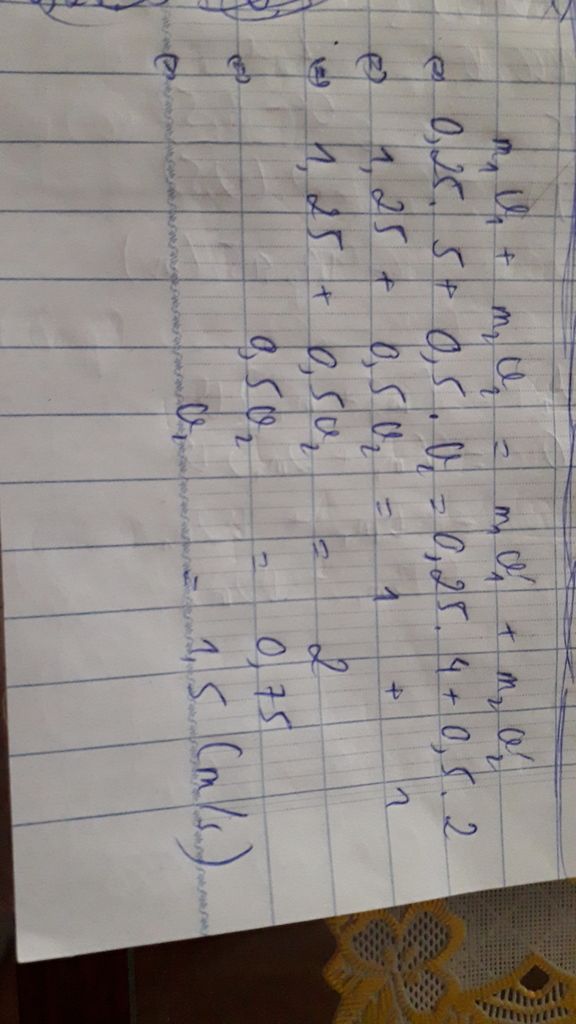 m₁ v₁ + m₂ v₂ = m₁ v₁' + m₂ v₂'
⇔ 0,25. 5 + 0,5. v₂ = 0,25. 4 + 0,5. 2
⇔ 1,25 + 0,5 v₂ = 1 + 1
⇔ 1,25 + 0,5 v₂ = 2
⇔ 0,5 v₂ = 0,75
⇔ v₂ = 1,5 (m/s)